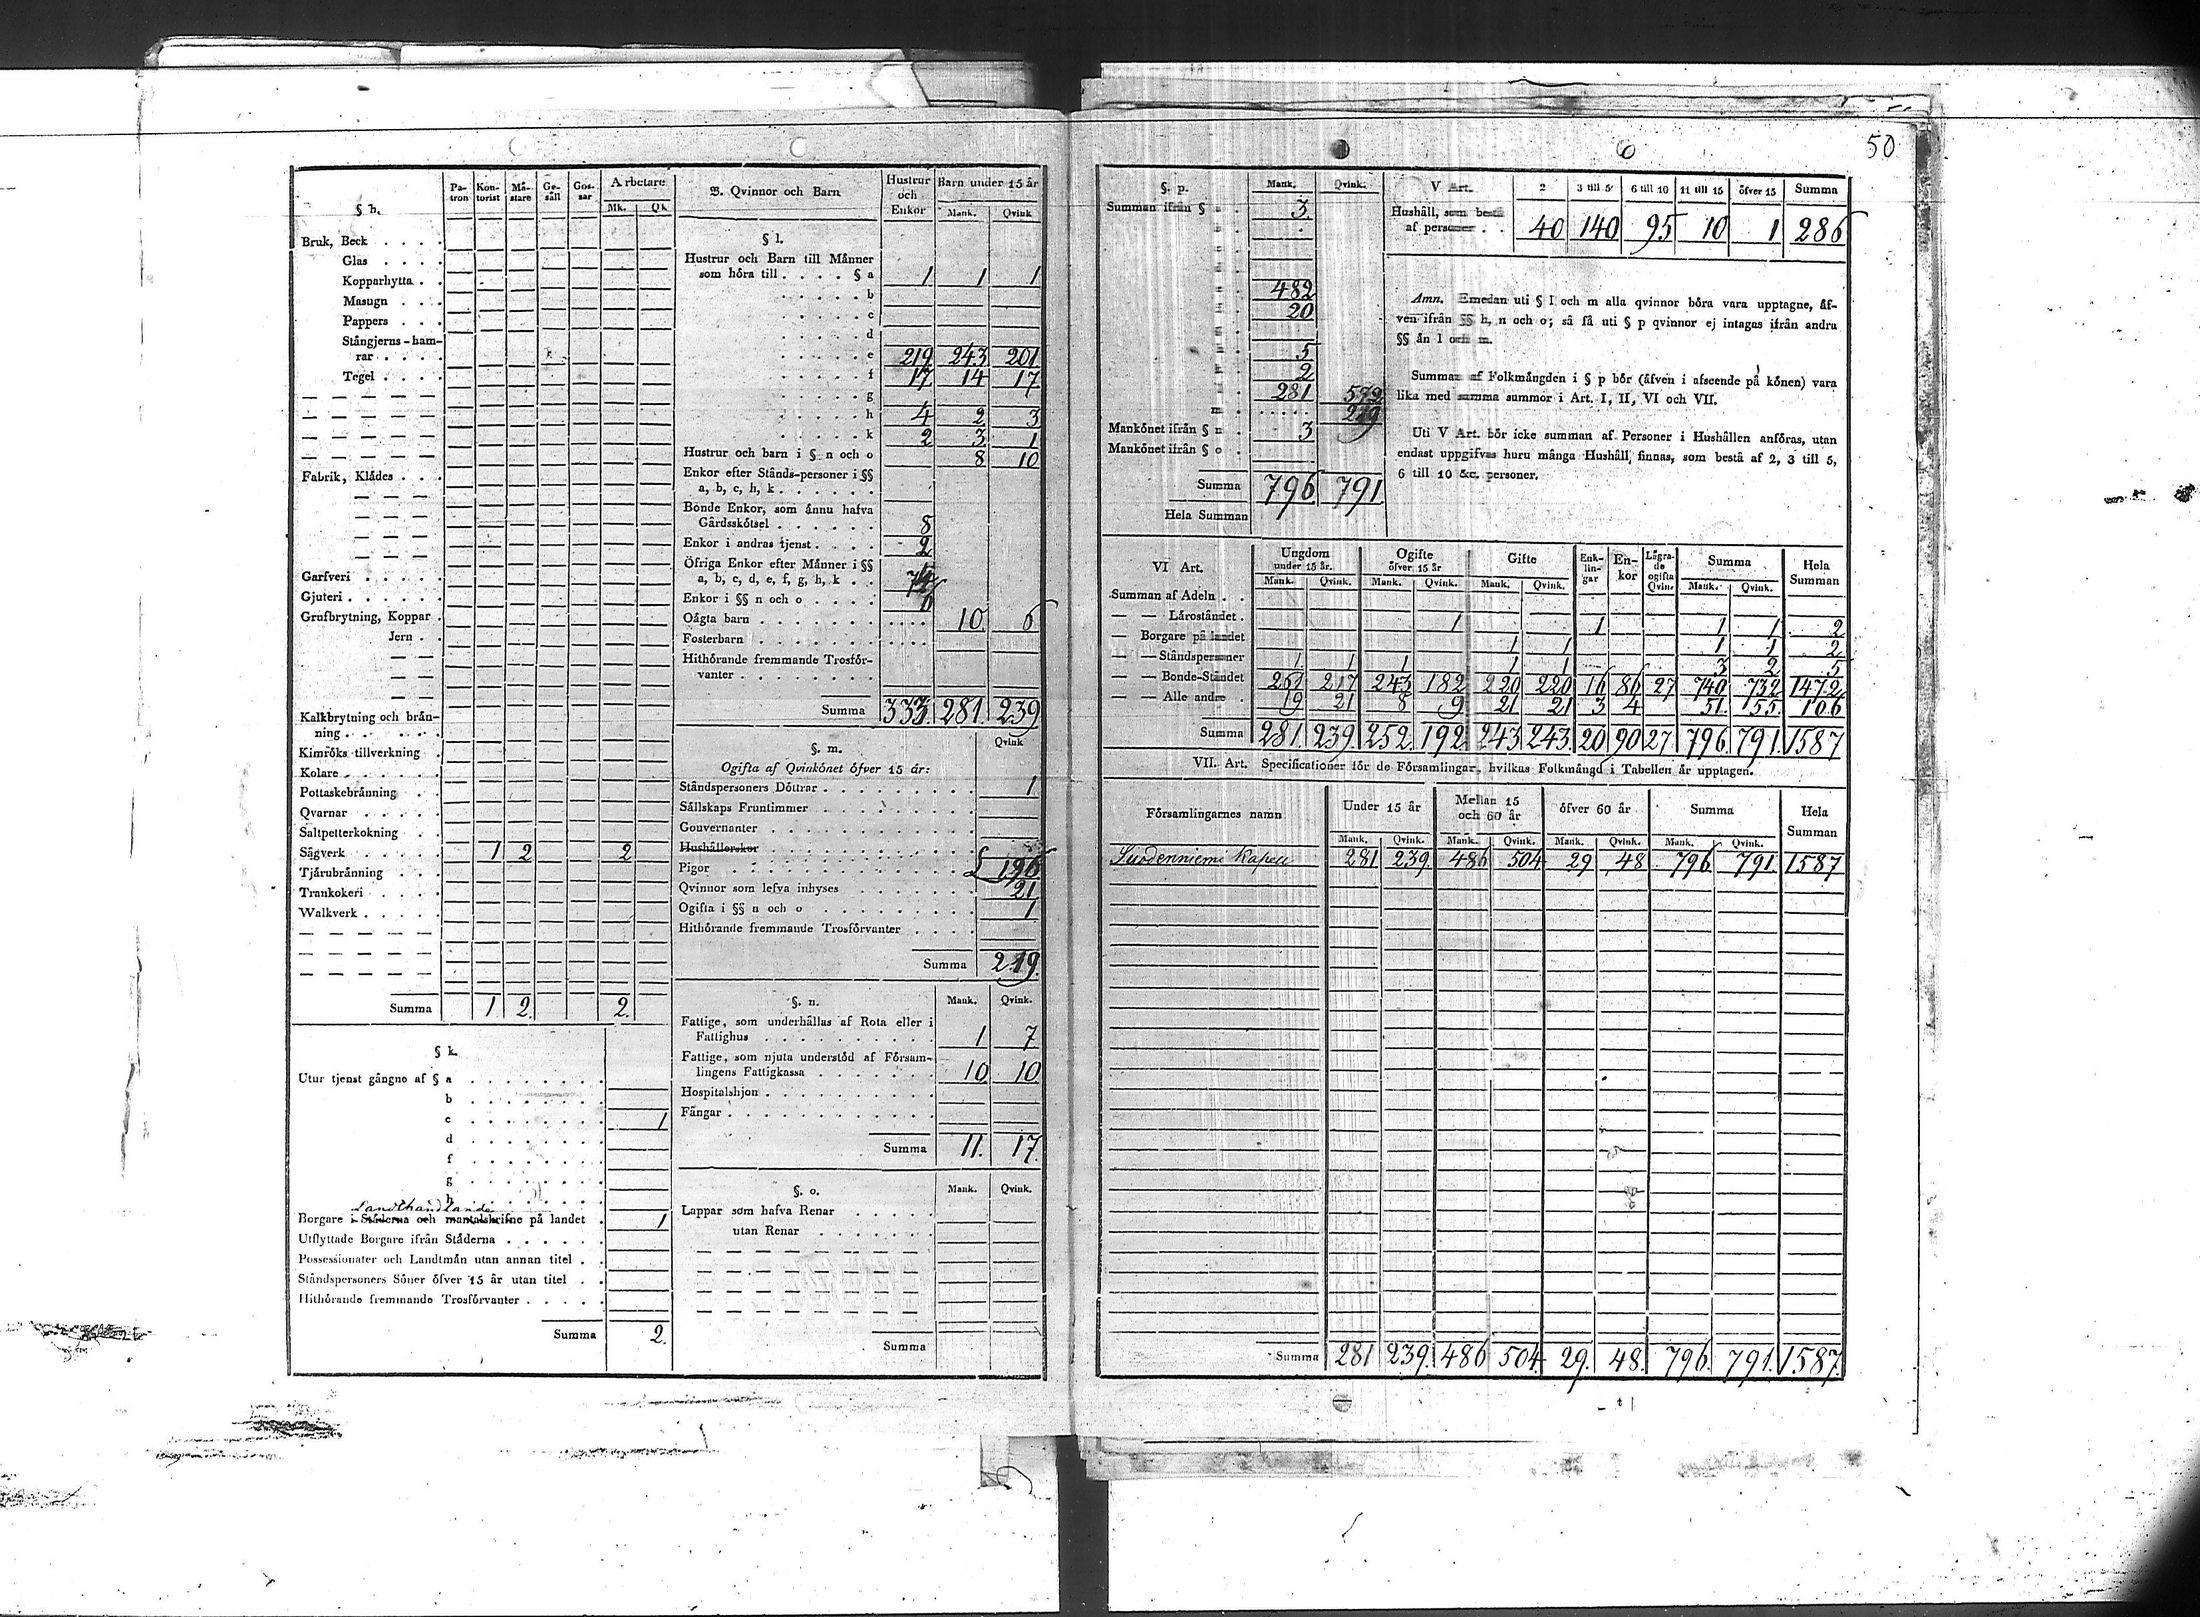 50
6
§ h.
Pa-tron Kon-torist Mä-stare Ge-säll Gos-sar Arbetare
Mk. Qk
Bruk, Beck . . . .
Glas . . . .
Kopparhytta . .
Masugn . . .
Pappers . . .
Stångjerns-ham-
rar . . . .
Tegel . . . .
Fabrik, Klädes . . .
Garfveri . . . . .
Gjuteri . . . . .
Grufbrytning, Koppar .
Jern . .
Kalkbrytning och brän-
ning . . . . . .
Kimröks tillverkning .
Kolare . . . . .
Pottaskebränning . .
Qvarnar . . . .
Saltpetterkokning . .
Sågverk . . . . . 1 2 2
Tjärubränning . . .
Trankokeri . . . .
Walkverk . . . . .
Summa 1 2. 2.
§ k.
Utur tjenst gångne af § a . . . . . . . .
b . . . . . . . .
c . . . . . . . . 1
d . . . . . . . .
f . . . . . . . .
g . . . . . . . .
h . . . . . . . .
Landthandlande
Borgare i Städerna och mantalskrifne på landet . 1
Utflyttade Borgare ifrån Städerna . . . . . .
Possessionater och Landtmän utan annan titel . .
Ståndspersoners Söner öfver 15 år utan titel . .
Hithörande fremmande Trosförvanter . . . . .
Summa 2.
B. Qvinnor och Barn Hustrur och Enkor Barn under 15 år
Mank. Qvink
§ l.
Hustrur och Barn till Männer
som höra till . . . . § a 1 1 1
. . . . . b
. . . . . c
. . . . . d
. . . . . e 219 243 201
. . . . . f 17 14 17
. . . . . g
. . . . . h 4 2 3
. . . . . k 2 3 1
Hustrur och barn i § n och o 8 10
Enkor efter Stånds-personer i §§
a, b, c, h, k . . . . . .
Bonde Enkor, som ännu hafva
Gårdsskötsel . . . . . . 8
Enkor i andras tjenst . . . . 2
Öfriga Enkor efter Männer i §§
a, b, c, d, e, f, g, h, k . .
Enkor i §§ n och o . . . .
Oägta barn . . . . . . . 10 6
Fosterbarn . . . . . . .
Hithörande fremmande Trosför-
vanter . . . . . . . .
Summa 333. 281. 239
§. m. Qvink
Ogifta af Qvinkönet öfver 15 år:
Ståndspersoners Döttrar . . . . . . . . . 1
Sällskaps Fruntimmer . . . . . . . . .
Gouvernanter . . . . . . . . . . .
Hushållerskor . . . . . . . . . . .
Pigor . . . . . . . . . . . . 196
Qvinnor som lefva inhyses . . . . . . . 21
Ogifta i §§ n och o . . . . . . . . . 1
Hithörande fremmande Trosförvanter . . . .
Summa 219.
§. n. Mank. Qvink.
Fattige, som underhållas af Rota eller i
Fattighus . . . . . . . . . . 1 7
Fattige, som njuta understöd af Försam-
lingens Fattigkassa . . . . . . . 10 10
Hospitalshjon . . . . . . . . . .
Fångar . . . . . . . . . . . .
Summa 11. 17.
§. o. Mank. Qvink.
Lappar som hafva Renar . . . . .
utan Renar . . . . . . .
Summa
§. p. Mank. Qvink.
Summan ifrån § 3.
482
20
5
2
281 572
m . . . . . . 219
Mankönet ifrån § n . 3
Mankönet ifrån § o .
Summa 796. 791.
Hela Summan
V Art. 2 3 till 5 6 till 10 11 till 15 öfver 15 Summa
Hushåll, som bestå
af personer . . 40 140 95 10 1 286
Anm. Emedan uti § l och m alla qvinnor böra vara upptagne, äf-
ven ifrån §§ h, n och o; så få uti § p qvinnor ej intagas ifrån andra
§§ än l och m.
Summan af Folkmängden i § p bör (äfven i afseende på könen) vara
lika med samma summor i Art. I, II, VI och VII.
Uti V Art. bör icke summan af Personer i Hushållen anföras, utan
endast uppgifvas huru många Hushåll, finnas, som bestå af 2, 3 till 5,
6 till 10 &c. personer.
VI Art. Ungdom under 15 år. Ogifte öfver 15 år Gifte Enk-lin-gar En-kor Lägra-de ogifta Qvin. Summa Hela Summan
Mank. Qvink. Mank. Qvink. Mank. Qvink. Mank. Qvink.
Summan af Adeln . .
— — Läroståndet . 1 1 1 1 2
— — Borgare på landet 1 1 1 1 2
— — Ståndspersoner 1 1 1 1 1 3 2 5
— — Bonde-Ståndet 261 217 243 182 220 220 16 86 27 740 732 1472
— — Alle andre . 19 21 8 9 21 21 3 4 51. 55. 106
Summa 281. 239. 252. 192. 243. 243. 20 90 27 796 791. 1587
VII. Art. Specificationer för de Församlingar, hvilkas Folkmängd i Tabellen är upptagen.
Församlingarnes namn Under 15 år Mellan 15 och 60 år öfver 60 år Summa Hela Summan
Mank. Qvink. Mank. Qvink. Mank. Qvink. Mank. Qvink.
Suodenniemi Kapell 281 239 486 504 29 48 796. 791. 1587
Summa 281 239. 486 504. 29. 48. 796. 791. 1587.